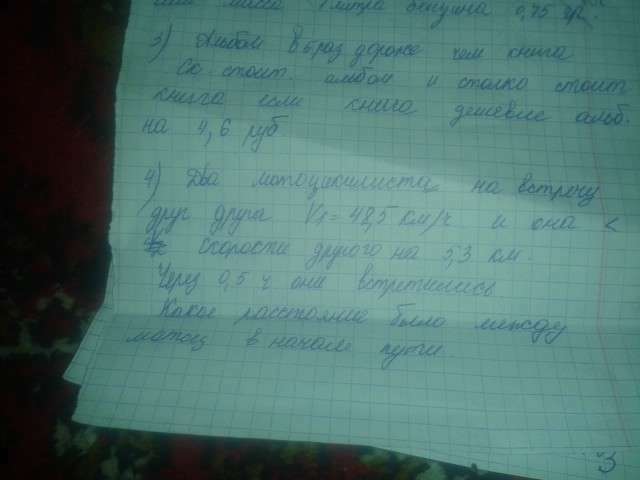 масса 1 метра 0,75
3) Альбом в 5 раз дороже чем книга
Ско стоит альбом и столко стоит
книга если книга дешевле альб.
на 4,6 руб
4) Два мотоциклиста на встречу
друг друга V₁= 48,5 км/ч и она <
скорости другого на 5,3 км.
Через 0,5 ч они встретились
Какое расстояние было между
мотоц в начале пути.